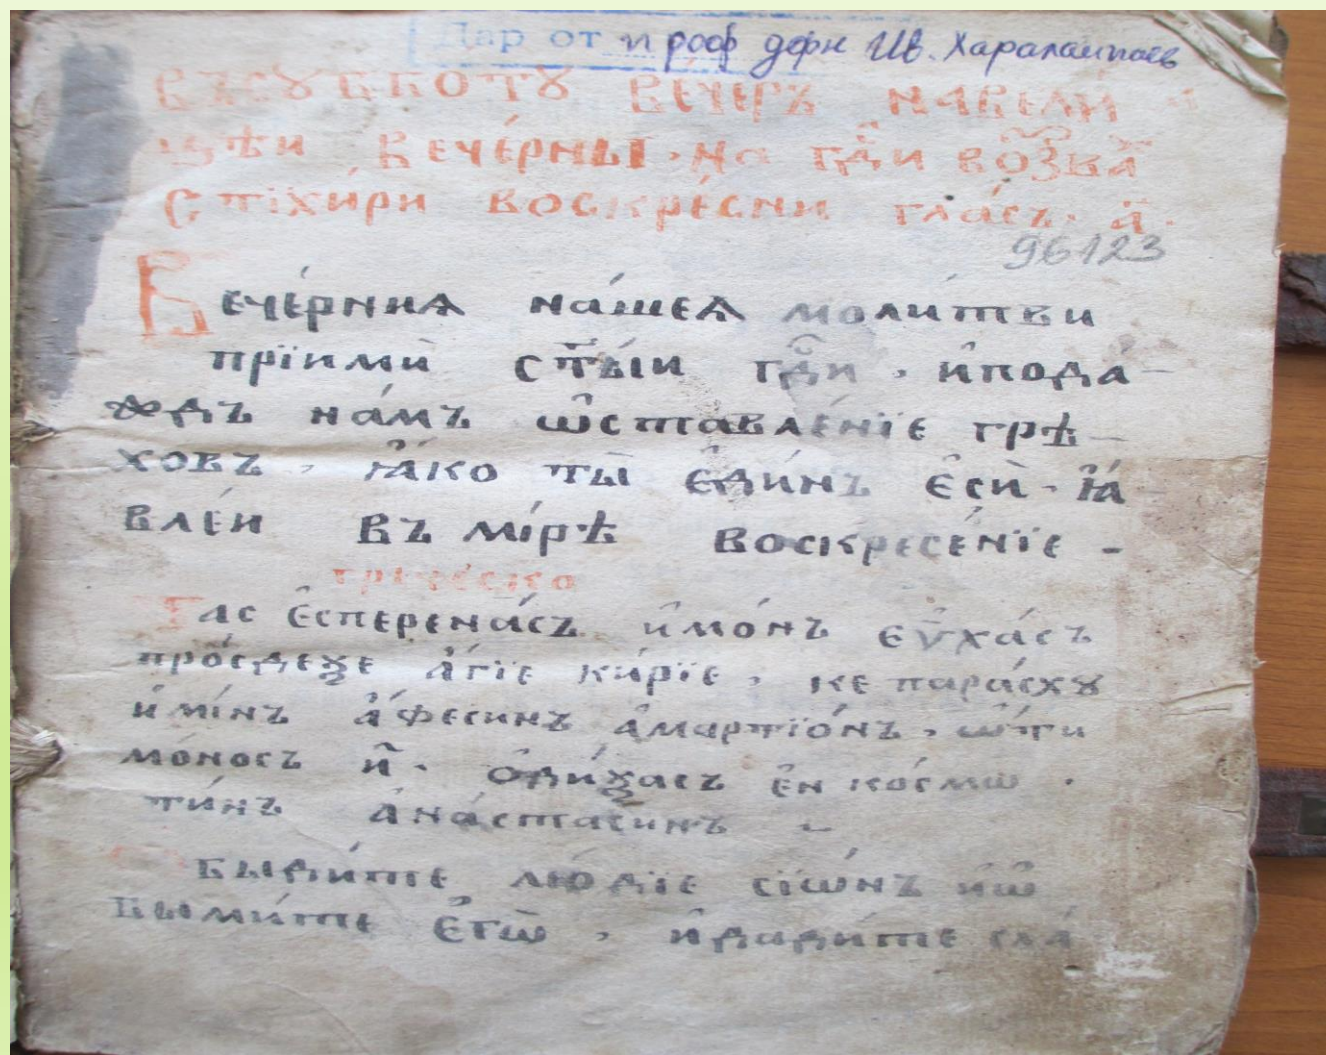 Дар от проф дфн Ив. Харалампиев
въсꙋбботꙋ ве́черъ навели
цѣи вече́рны · на гд҇и во҆зва
стїхи́ри воскре́сни гла́съ · а҃ ·
96123
Вече́рниѧ на́шеѧ моли́тви
прїимѝ ст҃ы́и гд҇и , и҆пода́ –
ждъ на́мъ ѡ҆ставле́нїе грѣ –
ховъ , ꙗ҆́ко ты̀ є҆ди́нъ є҆сѝ · ꙗ҆́ –
вле́и въ мі́рѣ воскресе́нїе –
гре́ческо
Тас є҆сперена́съ и҆мо́нъ єѵ҆ха́съ
про́сдеѯе а҆́гїе ки́рїе , ке пара́схꙋ
и҆мі́нъ а҆́фесинъ а҆мартїо́нъ , ѡ҆́ти
мо́носъ и҆̃ · о҆ди́ѯасъ є҆н ко́смѡ ·
ти́нъ а҆на́стасинъ –
быди́те лю́дїе сїѡ́нъ и҆ѡ҆
быми́те є҆гѡ̀ , и҆дади́те сла́